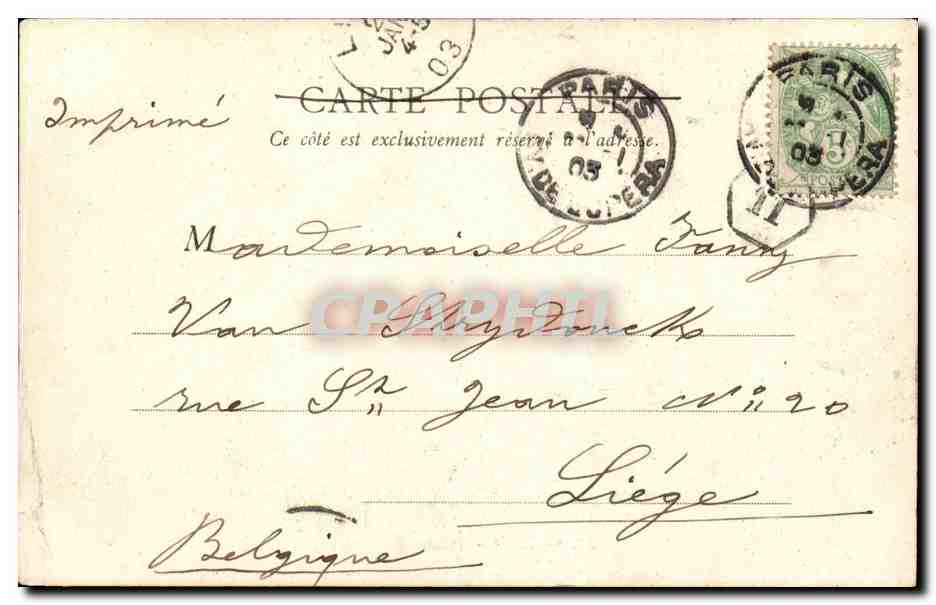 JAN
4-5
03
CARTE POSTALE
Imprimé
Ce côté est exclusivement réservé à l'adresse.
PARIS
03
DE L'OPERA
PARIS
03
5c
POSTE
OPERA
11
Mademoiselle Fanny
CPAPHIL
Van Strydonck
rue St Jean No 20
Liége
Belgique